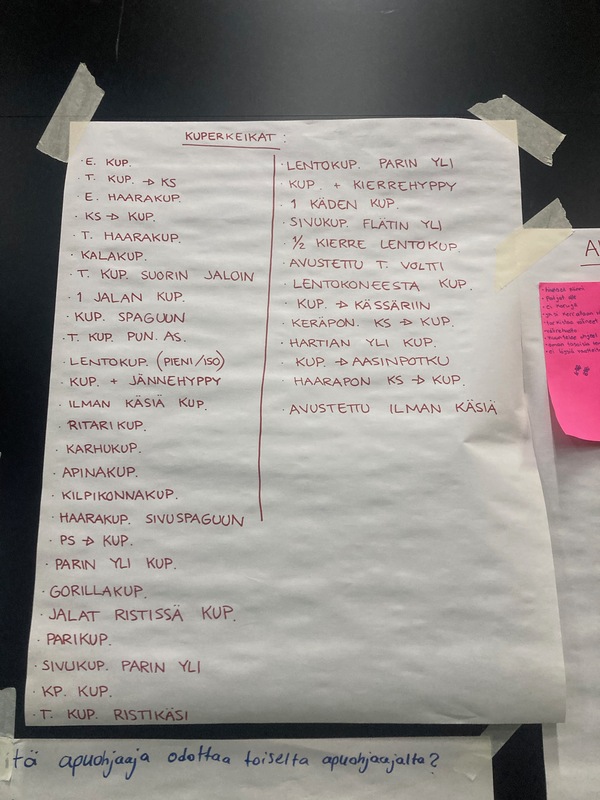 KUPERKEIKAT :
· E. KUP.
· T. KUP. → KS
· E. HAARAKUP.
· KS → KUP.
· T. HAARAKUP.
· KALAKUP.
· T. KUP. SUORIN JALOIN
· 1 JALAN KUP.
· KUP. SPAGUUN
· T. KUP. PUN. AS.
· LENTOKUP. (PIENI/ISO)
· KUP. + JÄNNEHYPPY
· ILMAN KÄSIÄ KUP.
· RITARIKUP.
· KARHUKUP.
· APINAKUP.
· KILPIKONNAKUP.
· HAARAKUP. SIVUSPAGUUN
· PS → KUP.
· PARIN YLI KUP.
· GORILLAKUP.
· JALAT RISTISSÄ KUP.
· PARIKUP.
· SIVUKUP. PARIN YLI
· KP. KUP.
· T. KUP. RISTIKÄSI
· LENTOKUP. PARIN YLI
· KUP. + KIERREHYPPY
· 1 KÄDEN KUP.
· SIVUKUP. FLÄTIN YLI
· ½ KIERRE LENTOKUP.
· AVUSTETTU T. VOLTTI
· LENTOKONEESTA KUP.
· KUP. → KÄSSÄRIIN
· KERÄPON. KS → KUP.
· HARTIAN YLI KUP.
KUP. → AASINPOTKU
· HAARAPON KS → KUP.
· AVUSTETTU ILMAN KÄSIÄ
tä apuohjaaja odottaa toiselta apuohjaajalta?